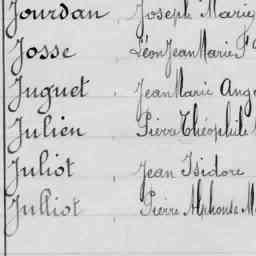 Jourdan Joseph Marie
Josse Léon Jean Marie Fs
Juguet Jean Marie Ange
Julien Pierre Théophile
Juliot Jean Isidore
Julliot Pierre Alphonse M